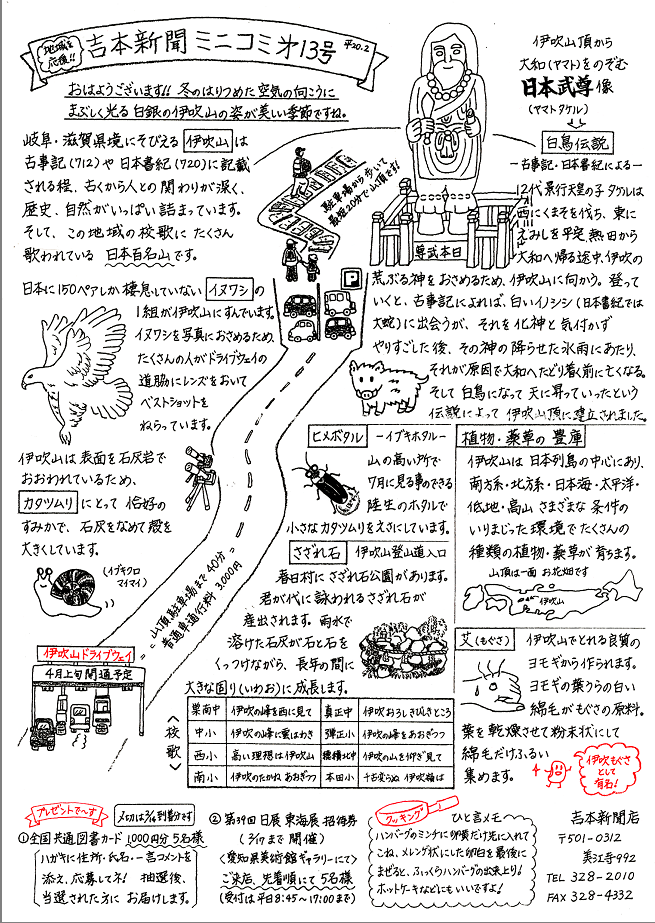 地域を応援!!
吉本新聞 ミニコミ 第13号 平20.2
おはようございます!! 冬のはりつめた 空気の向こうに
まぶしく光る 白銀の伊吹山の姿が美しい季節ですね。
岐阜・滋賀県境にそびえる 伊吹山 は
古事記(712)や 日本書紀(720)に記載
される程、古くから人との関わりが深く、
歴史、自然がいっぱい詰まっています。
そして、この地域の校歌に たくさん
歌われている 日本百名山です。
駐車場から歩いて
最短20分で山頂です!
P
日本武尊
伊吹山頂から
大和(ヤマト)をのぞむ
日本武尊像
(ヤマトタケル)
白鳥伝説
〜古事記・日本書紀による〜
12代景行天皇の子タケルは
西にくまそを伐ち、東に
えみしを平定。熱田から
大和へ帰る途中、伊吹の
荒ぶる神をおさめるため、伊吹山に向かう。登って
いくと、古事記によれば、白いイノシシ(日本書紀では
大蛇)に出会うが、それを化神と気付かず
やりすごした後、その神の降らせた氷雨にあたり、
それが原因で大和へたどり着く前に亡くなる。
そして 白鳥になって 天に昇っていったという
伝説によって 伊吹山頂に建立されました。
日本に150ペアしか棲息していない イヌワシ の
1組が伊吹山にすんでいます。
イヌワシを写真におさめるため、
たくさんの人がドライブウェイの
道脇にレンズをおいて
ベストショットを
ねらっています。
伊吹山は表面を石灰岩で
おおわれているため、
カタツムリ にとって 恰好の
すみかで、石灰をなめて殻を
大きくしています。
(イブキクロ
マイマイ)
ヒメボタル
ーイブキホタルー
山の高い所で
7月に見る事のできる
陸生のホタルで
小さなカタツムリをえさにしています。
さざれ石 伊吹山登山道入口
春日村に さざれ石公園があります。
君が代に詠われるさざれ石が
産出されます。雨水で
溶けた石灰が石と石を
くっつけながら、長年の間に
大きな固り(いわお)に成長します。
植物・薬草の豊庫
伊吹山は 日本列島の中心にあり、
南方系・北方系・日本海・太平洋・
低地・高山 さまざまな 条件の
いりまじった 環境で たくさんの
種類の植物・薬草が育ちます。
山頂は一面 お花畑です
伊吹山
艾(もぐさ) 伊吹山でとれる良質の
ヨモギから作られます。
ヨモギの葉うらの白い
綿毛がもぐさの原料。
葉を乾燥させて粉末状にして
綿毛だけふるい
集めます。
伊吹もぐさ
として
有名!
山頂駐車場まで40分
普通車通行料 3,000円
伊吹山ドライブウェイ
4月上旬開通予定
〈校歌〉
巣南中 伊吹の峰を西に見て 真正中 伊吹おろし きびしきところ
中小 伊吹の峰に雲はわき 弾正小 伊吹の峰をあおぎつつ
西小 高い理想は伊吹山 穂積北中 伊吹の山を仰ぎ見て
南小 伊吹のたかね あおぎつつ 本田小 千古変らぬ 伊吹嶺は
プレゼントで〜す
①全国共通図書カード 1,000円分 5名様
ハガキに住所・氏名・一言コメントを
添え、応募してネ! 抽選後、
当選された方に お届けします。
② 第39回 日展 東海展 招待券
(2/17まで開催)
〈愛知県美術館ギャラリーにて〉
ご来店、先着順にて 5名様
(受付は 平日8:45〜17:00まで)
クッキング ひと言メモ〜
ハンバーグのミンチに卵黄だけ先に入れて
こね、メレンゲ状にした卵白を最後に
まぜると、ふっくらハンバーグの出来上り!
ホットケーキなどにもいいですよ!
吉本新聞店
〒501-0312
美江寺992
TEL 328-2010
FAX 328-4332